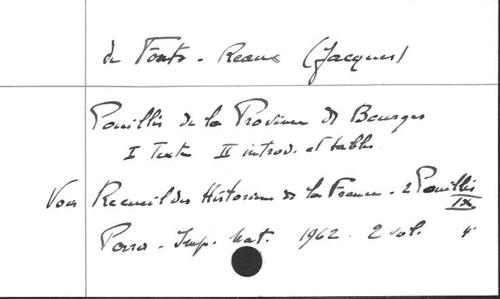 de Font-Reaux (Jacques)
Pouillés de la Province de Bourges
I Texte II introd. et tables
Voir Recueil des Historiens de la France - 2 Pouillés
IX
Paris - Imp. Nat. 1962. 2 vol. 4°